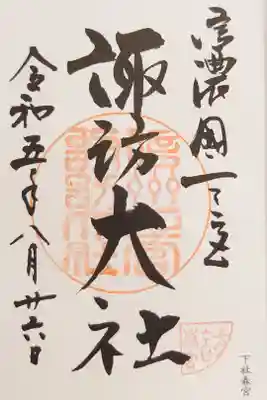 信濃國一之宮
諏訪大社
令和五年八月廿六日
下社春宮